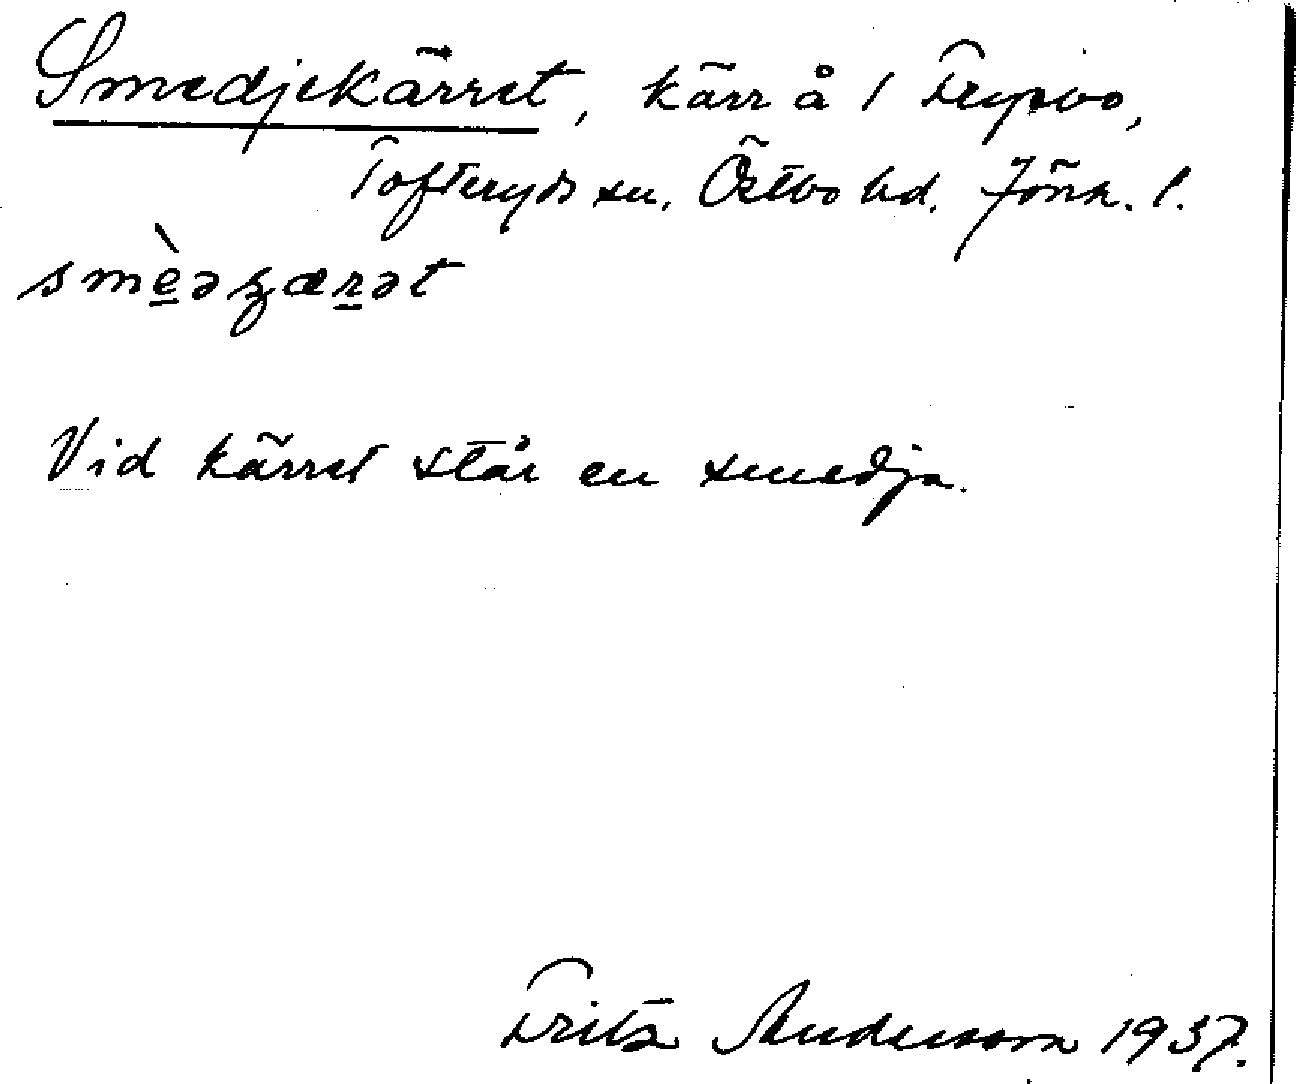 Smedjekärret, kärr å 1 Frysbo,
Tofteryds sn. Östbo hd. Jönk. l.
smèəʓærət
Vid kärret står en smedja.
Fritz Andersson 1937.